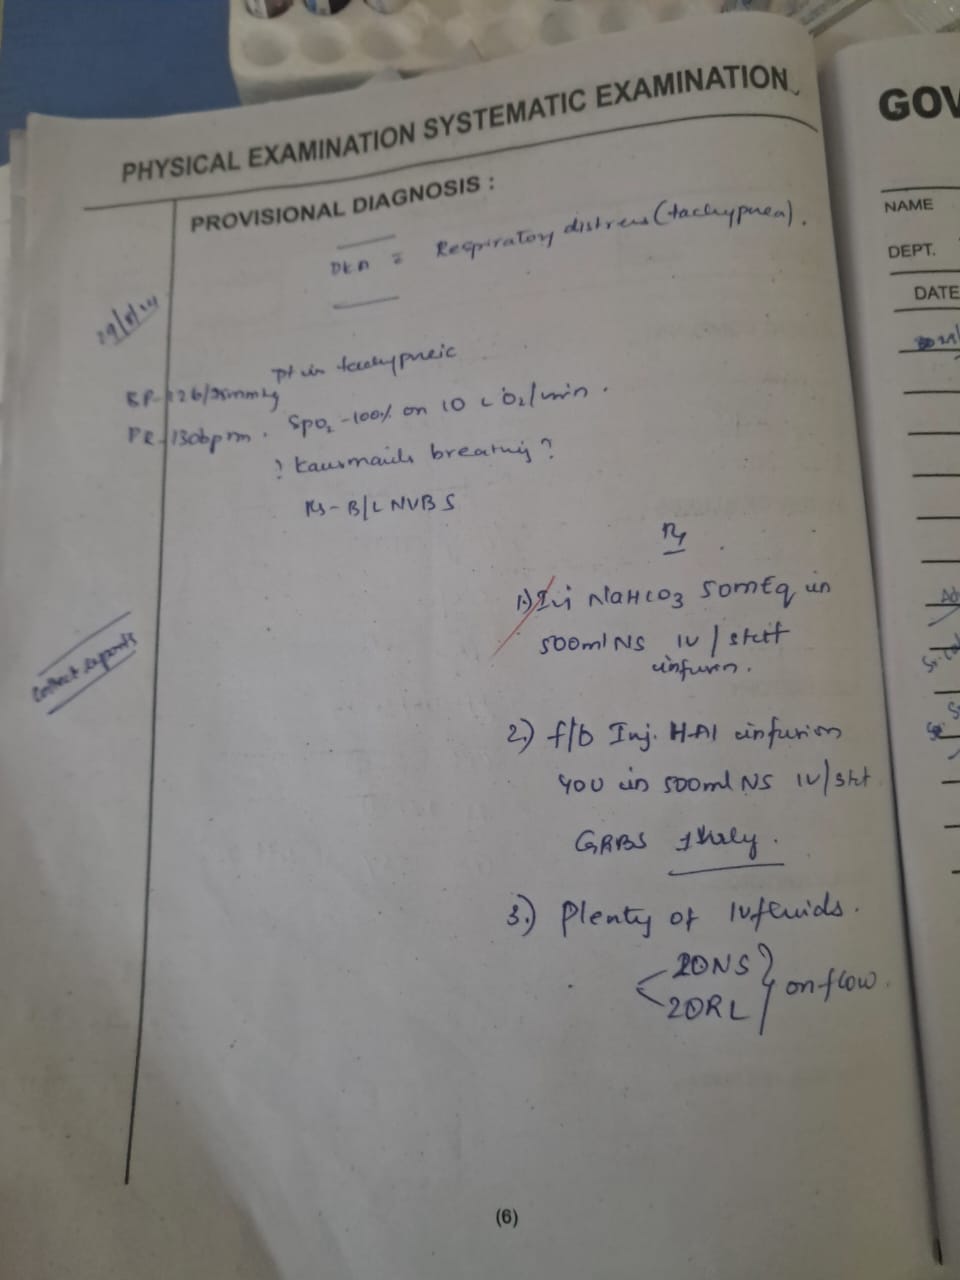 PHYSICAL EXAMINATION SYSTEMATIC EXAMINATION
PROVISIONAL DIAGNOSIS :
DKA c Respiratory distress (tachypnea).
pt is tachypneic
BP-126/
PR-130bpm. SpO2 -100% on 10 L O2/min.
? Kausmauls breathing ?
RS- B/L NVBS
Rx
1.) Inj NaHCO3 50mEq in
500ml NS IV/stat
infusion.
2.) f/b Inj. HAI infusion
40U in 500ml NS IV/stat
GRBS 1hrly.
3.) Plenty of IV fluids.
NS
RL
on flow.
Collect reports
(6)
GOV
NAME
DEPT.
DATE